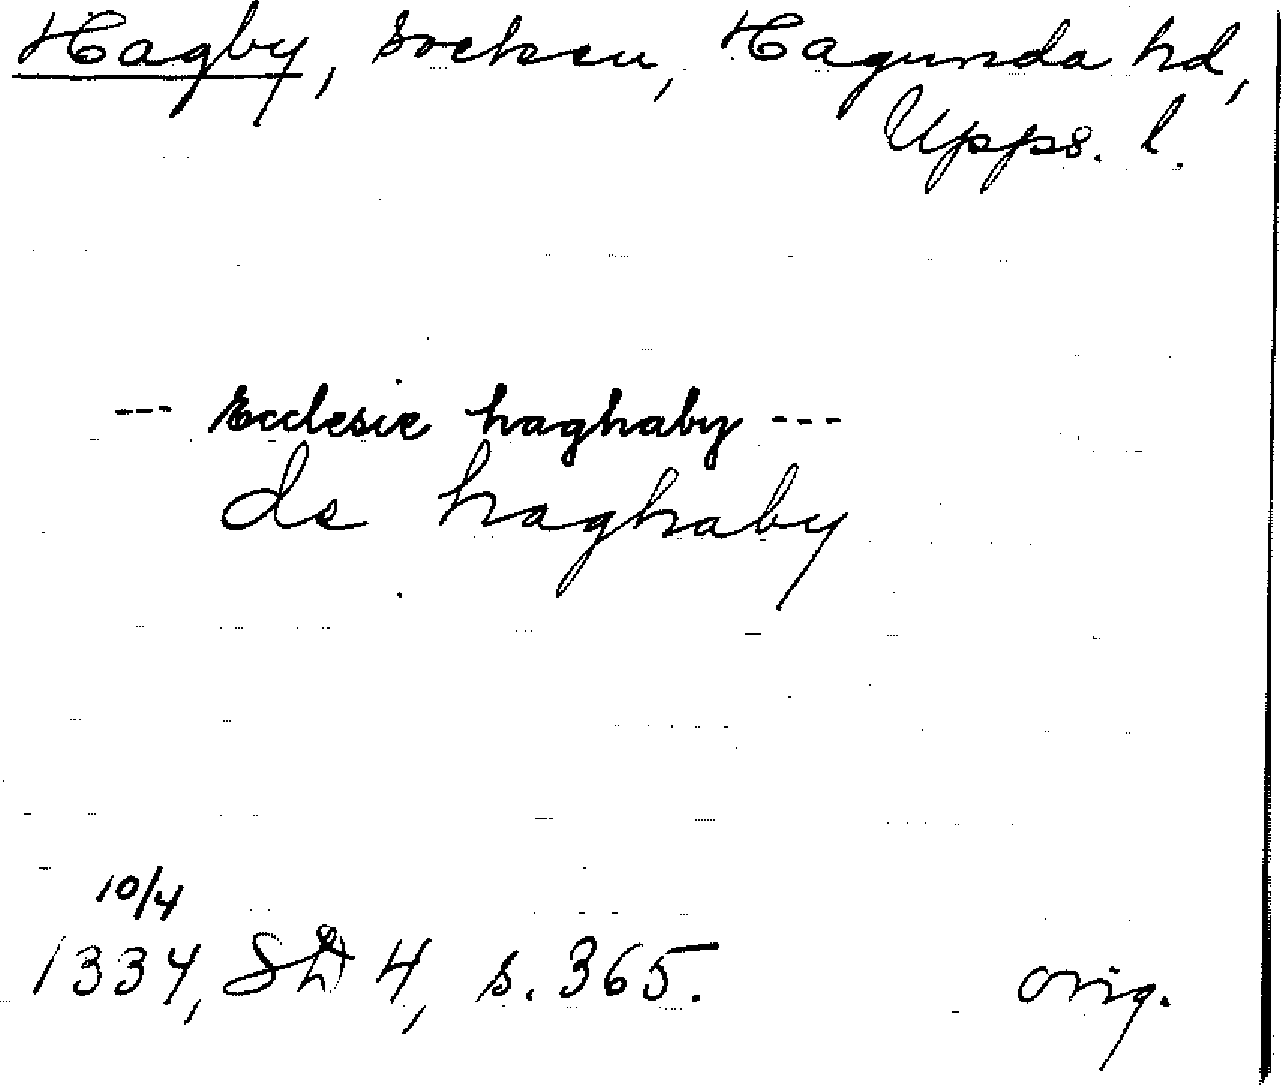 Hagby, socken, Hagunda hd,
Upps. l.
--- Ecclesie haghaby ---
de haghaby
10/4
1334, SD 4, s. 365. orig.